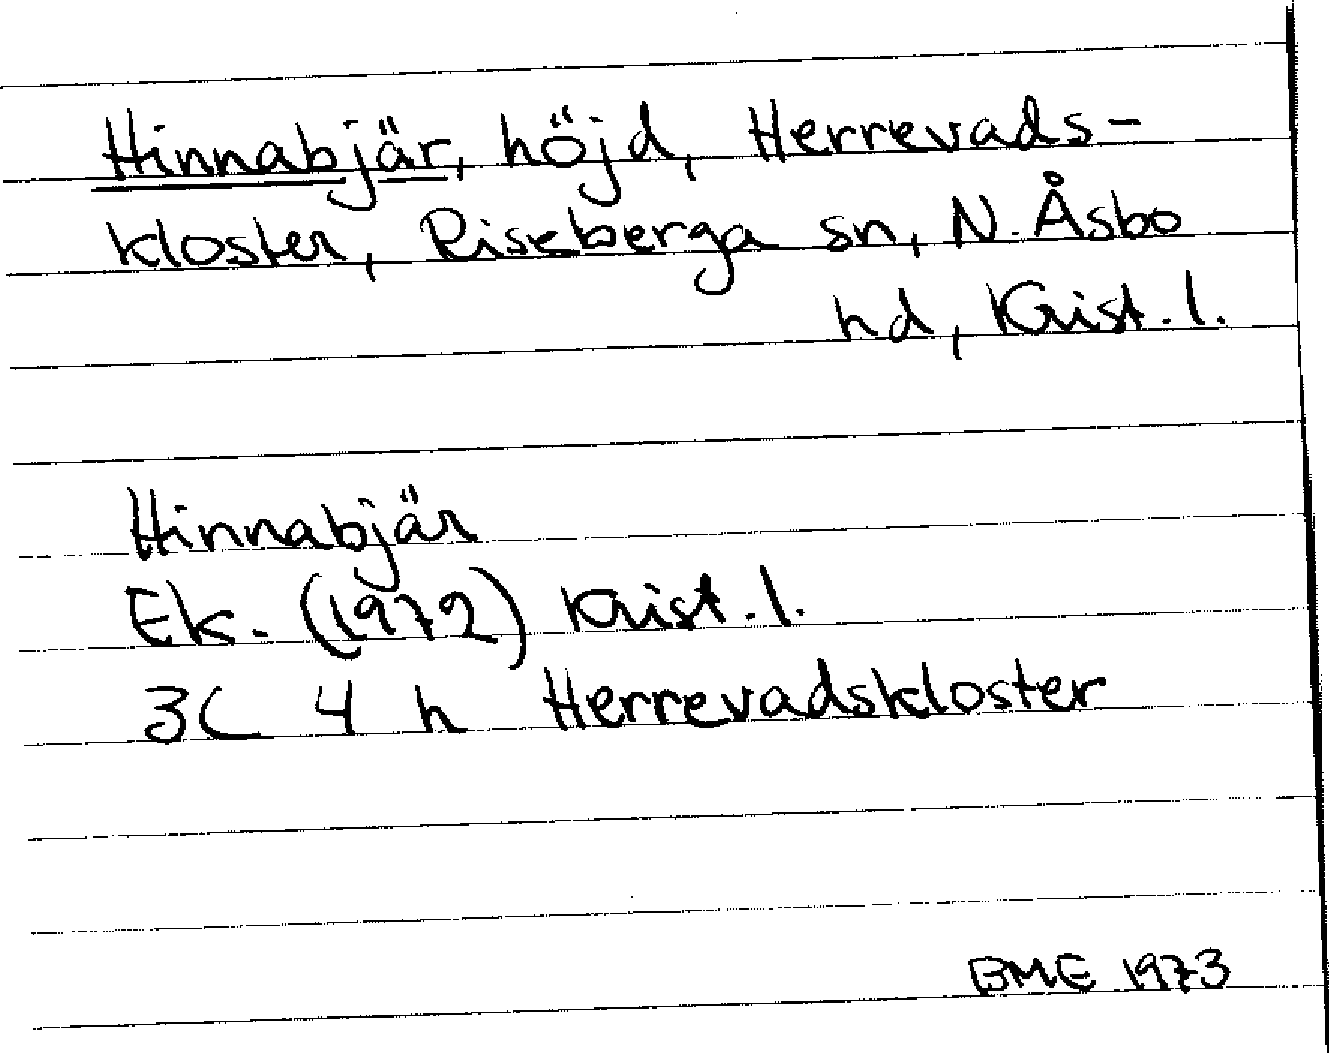 Hinnabjär, höjd, Herrevads-
kloster, Riseberga sn, N. Åsbo
hd, Krist. l.
Hinnabjär
Ek. (1972) Krist. l.
3C 4 h Herrevadskloster
BME 1973